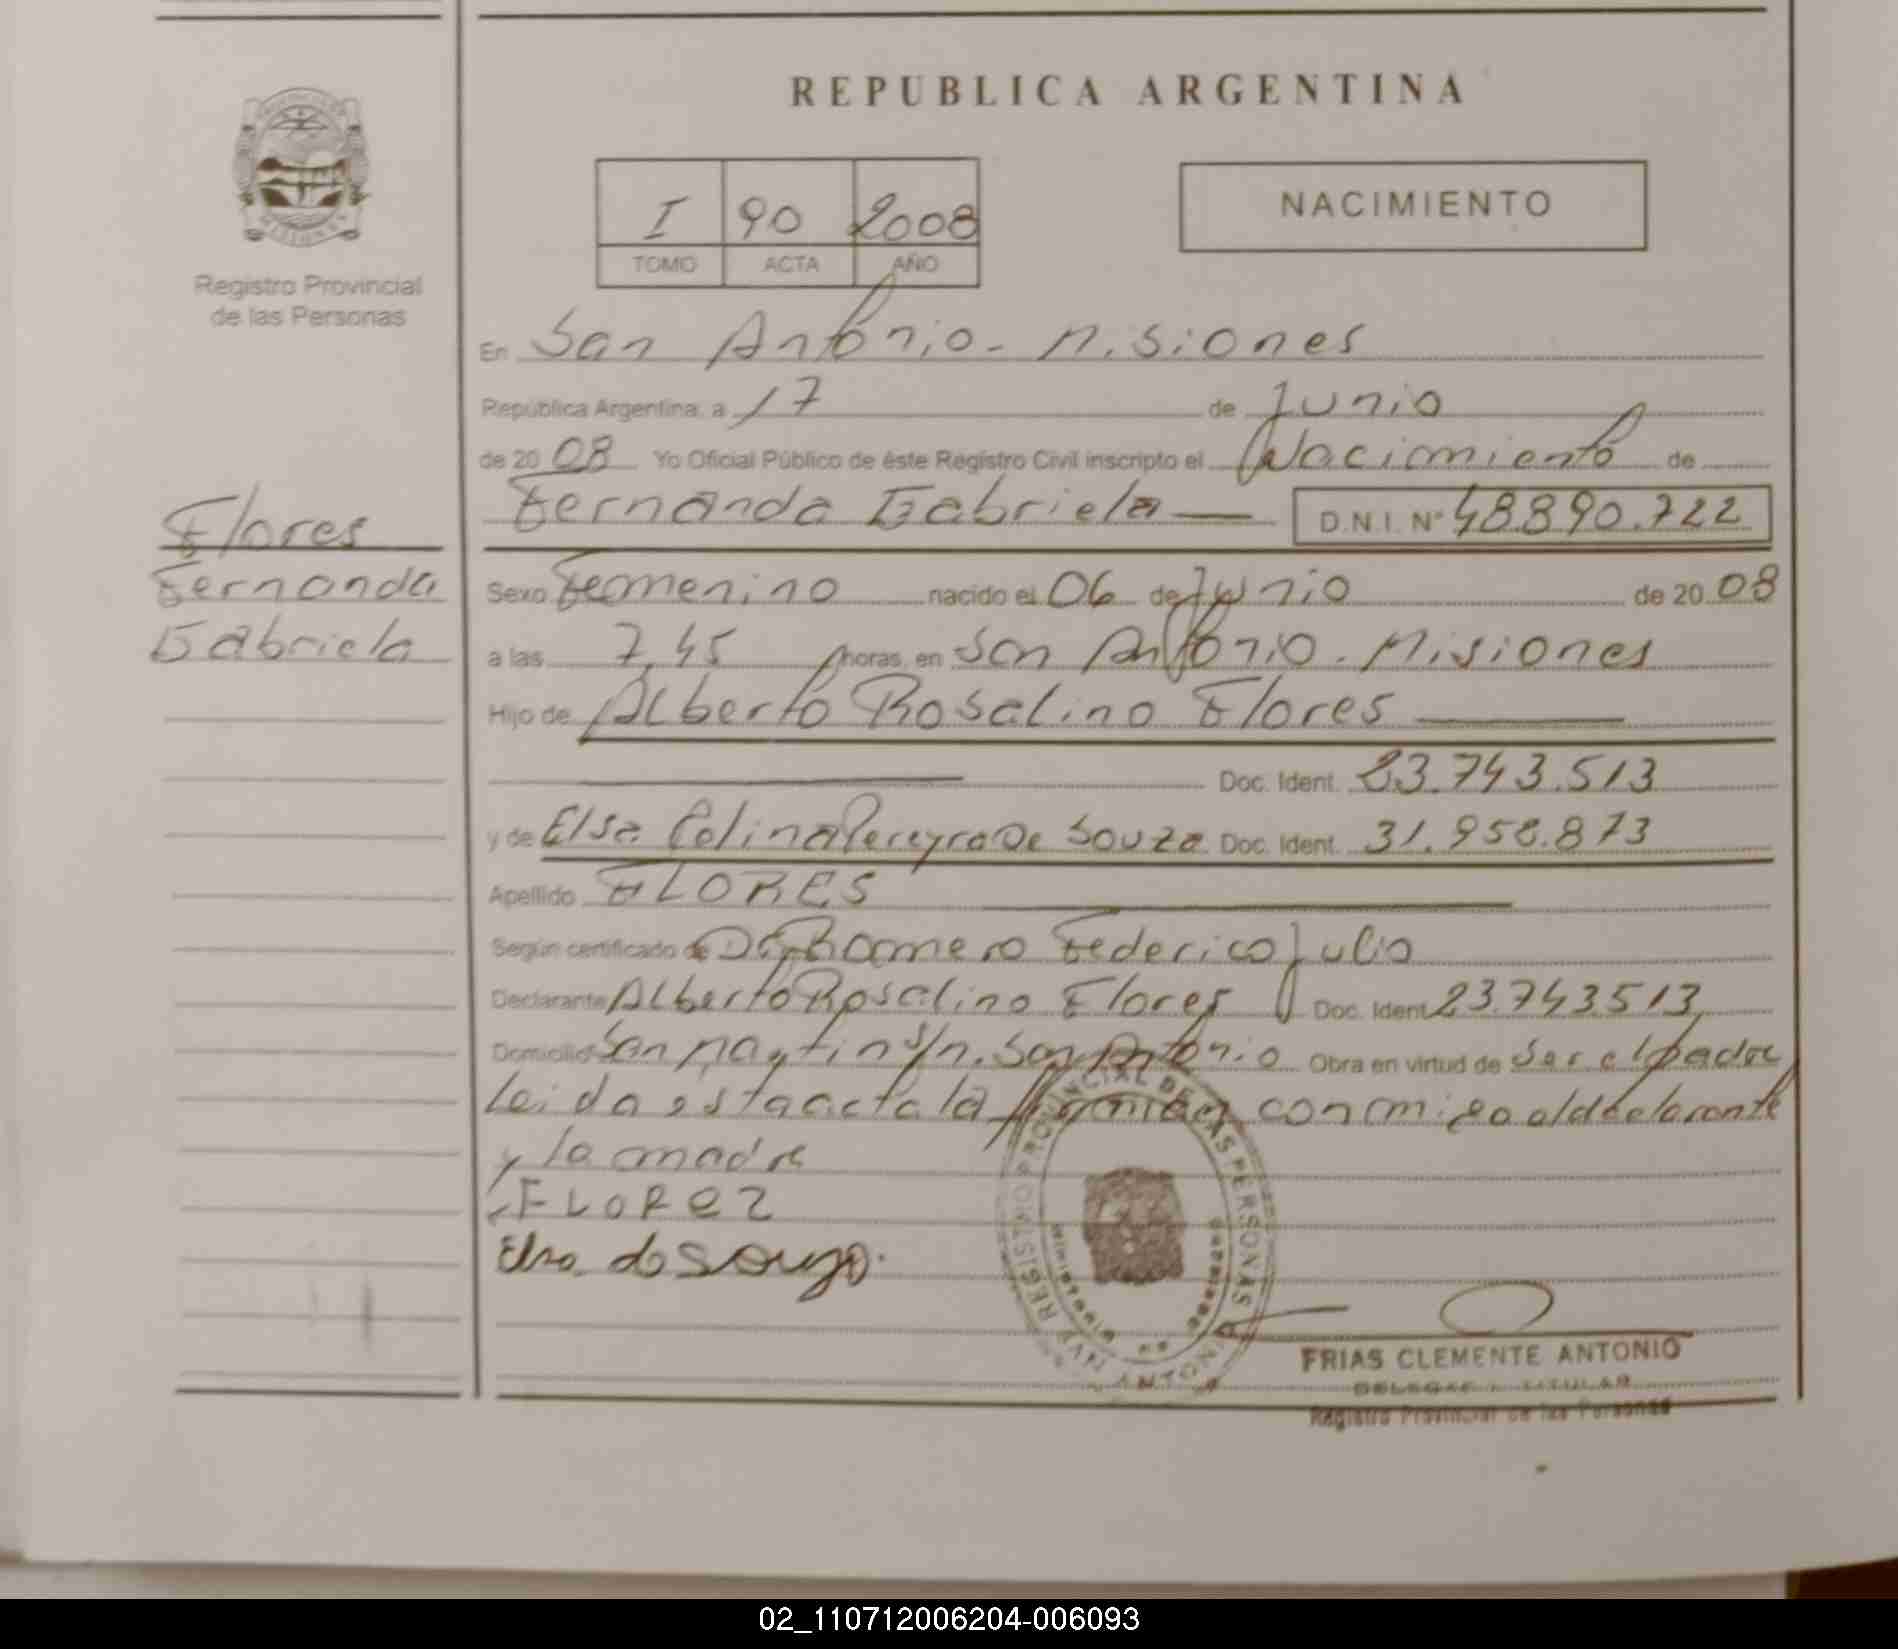 REPUBLICA ARGENTINA
I 90 2008
TOMO ACTA AÑO
NACIMIENTO
Registro Provincial
de las Personas
En San Antonio - Misiones
República Argentina, a 17 de Junio
de 20 08 Yo Oficial Público de éste Registro Civil inscripto el Nacimiento de
Fernanda Gabriela D.N.I. Nº 48890.722
Flores
Fernanda
Gabriela
Sexo Femenino nacido el 06 de Junio de 20 08
a las 7,45 horas, en San Antonio - Misiones
Hijo de Alberto Rosalino Flores
Doc. Ident. 23.743.513
y de Elsa Pereyra De Souza Doc. Ident. 31.958.873
Apellido FLORES
Según certificado de Romero Federico Julio
Declarante Alberto Rosalino Flores Doc. Ident 23.743513
Domicilio San Martin S/n. San Antonio Obra en virtud de Ser el padre
Leida esta acta la firman conmigo el declarante
y la madre
FLOREZ
Elsa de Souza.
REGISTRO PROVINCIAL DE LAS PERSONAS
FRIAS CLEMENTE ANTONIO
DELEGADO TITULAR
Registro Provincial de las Personas
02_110712006204-006093